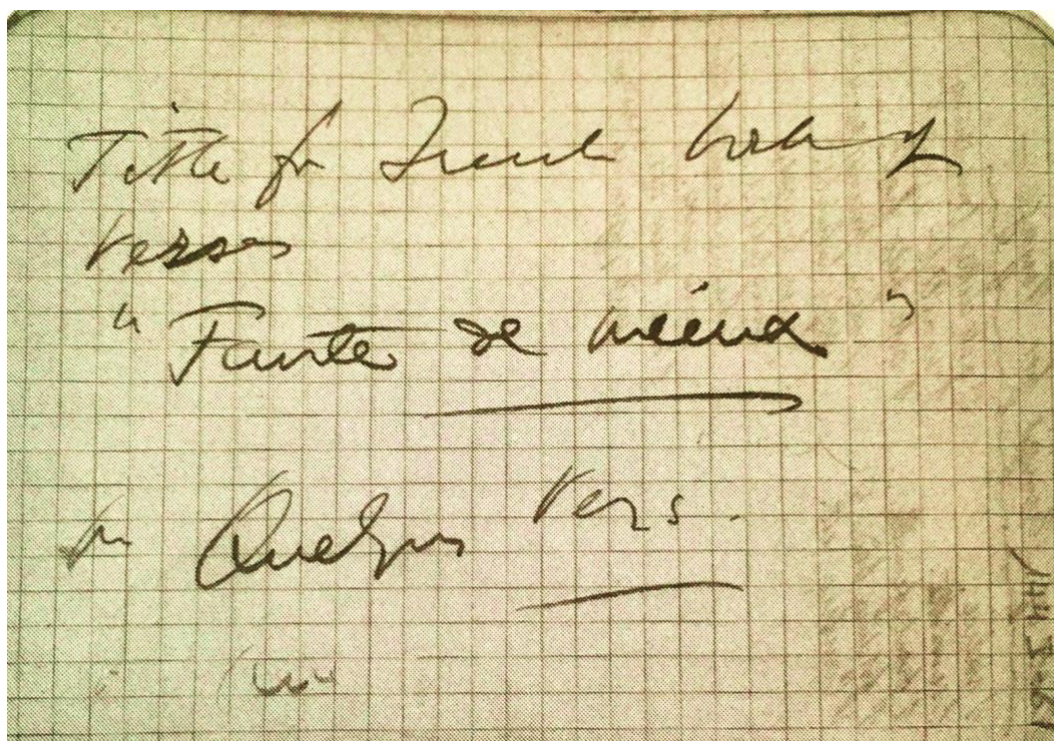 Title for French book of
verses
"Faute de mieux"
or Quelques Vers.